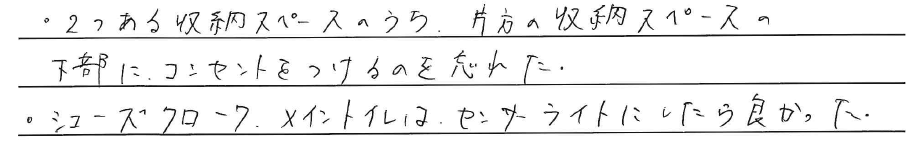 ・2つある収納スペースのうち、片方の収納スペースの
下部に、コンセントをつけるのを忘れた。
・シューズクローク、メイントイレは、センサーライトにしたら良かった。